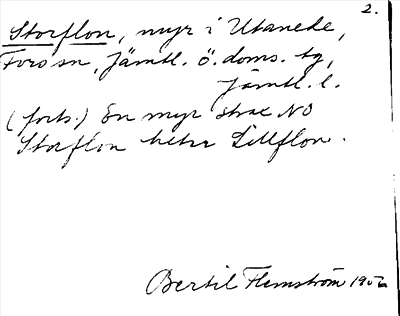 2.
Storflon, myr i Utanede,
Fors sn, Jämtl. ö. doms. tg,
Jämtl. l.
(forts.) En myr strax NO
Storflon heter Lillflon.
Bertil Flemström